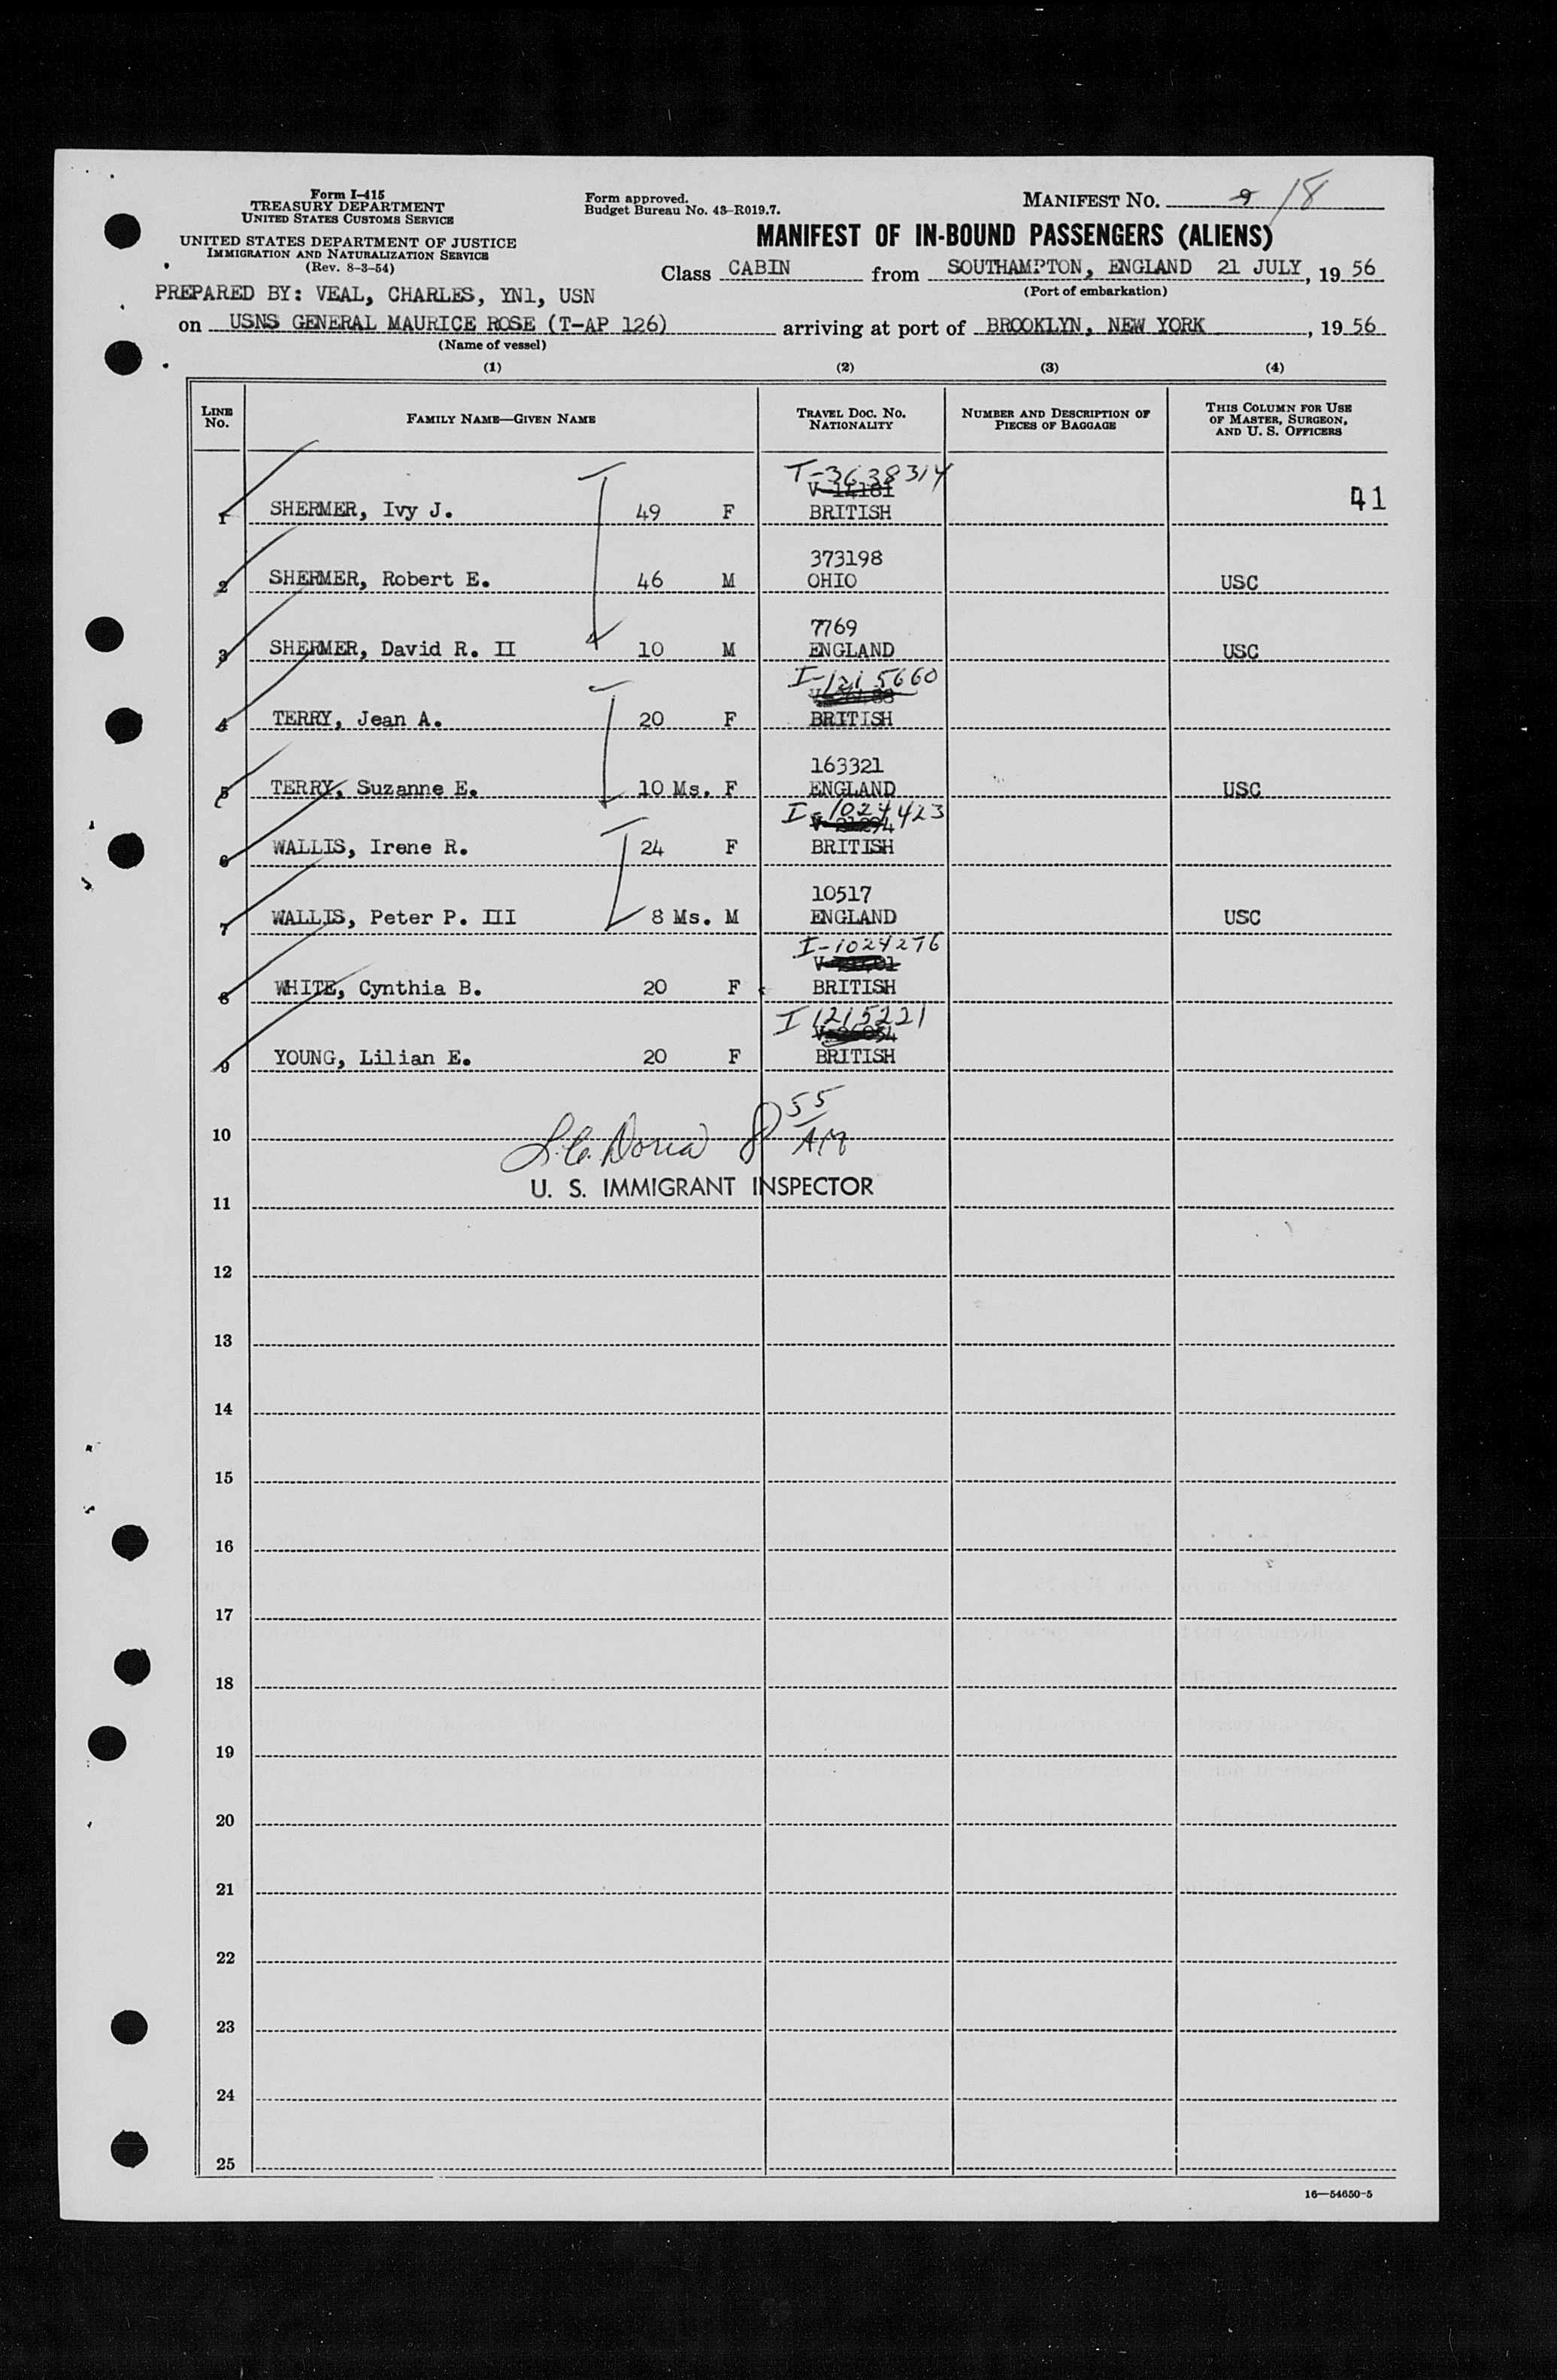 Form I-415
TREASURY DEPARTMENT
UNITED STATES CUSTOMS SERVICE
UNITED STATES DEPARTMENT OF JUSTICE
IMMIGRATION AND NATURALIZATION SERVICE
(Rev. 8-3-54)
Form approved.
Budget Bureau No. 43-R019.7.
MANIFEST NO. 9 18
MANIFEST OF IN-BOUND PASSENGERS (ALIENS)
Class CABIN from SOUTHAMPTON, ENGLAND 21 JULY, 1956
(Port of embarkation)
PREPARED BY: VEAL, CHARLES, YN1, USN
on USNS GENERAL MAURICE ROSE (T-AP 126) arriving at port of BROOKLYN, NEW YORK, 1956
(Name of vessel)
(1) (2) (3) (4)
LINE NO.
FAMILY NAME—GIVEN NAME
TRAVEL DOC. NO.
NATIONALITY
NUMBER AND DESCRIPTION OF
PIECES OF BAGGAGE
THIS COLUMN FOR USE
OF MASTER, SURGEON,
AND U. S. OFFICERS
T-3638314
V-14181
41
1 SHERMER, Ivy J. 49 F BRITISH
373198
2 SHERMER, Robert E. 46 M OHIO USC
7769
3 SHERMER, David R. II 10 M ENGLAND USC
I-1215660
4 TERRY, Jean A. 20 F BRITISH
163321
5 TERRY, Suzanne E. 10 Ms. F ENGLAND USC
I-1024423
6 WALLIS, Irene R. 24 F BRITISH
10517
7 WALLIS, Peter P. III 8 Ms. M ENGLAND USC
I-1024276
8 WHITE, Cynthia B. 20 F BRITISH
I 1215221
9 YOUNG, Lilian E. 20 F BRITISH
10 L.C. Doria 8 55 AM
U. S. IMMIGRANT INSPECTOR
11
12
13
14
15
16
17
18
19
20
21
22
23
24
25
16—54650-5